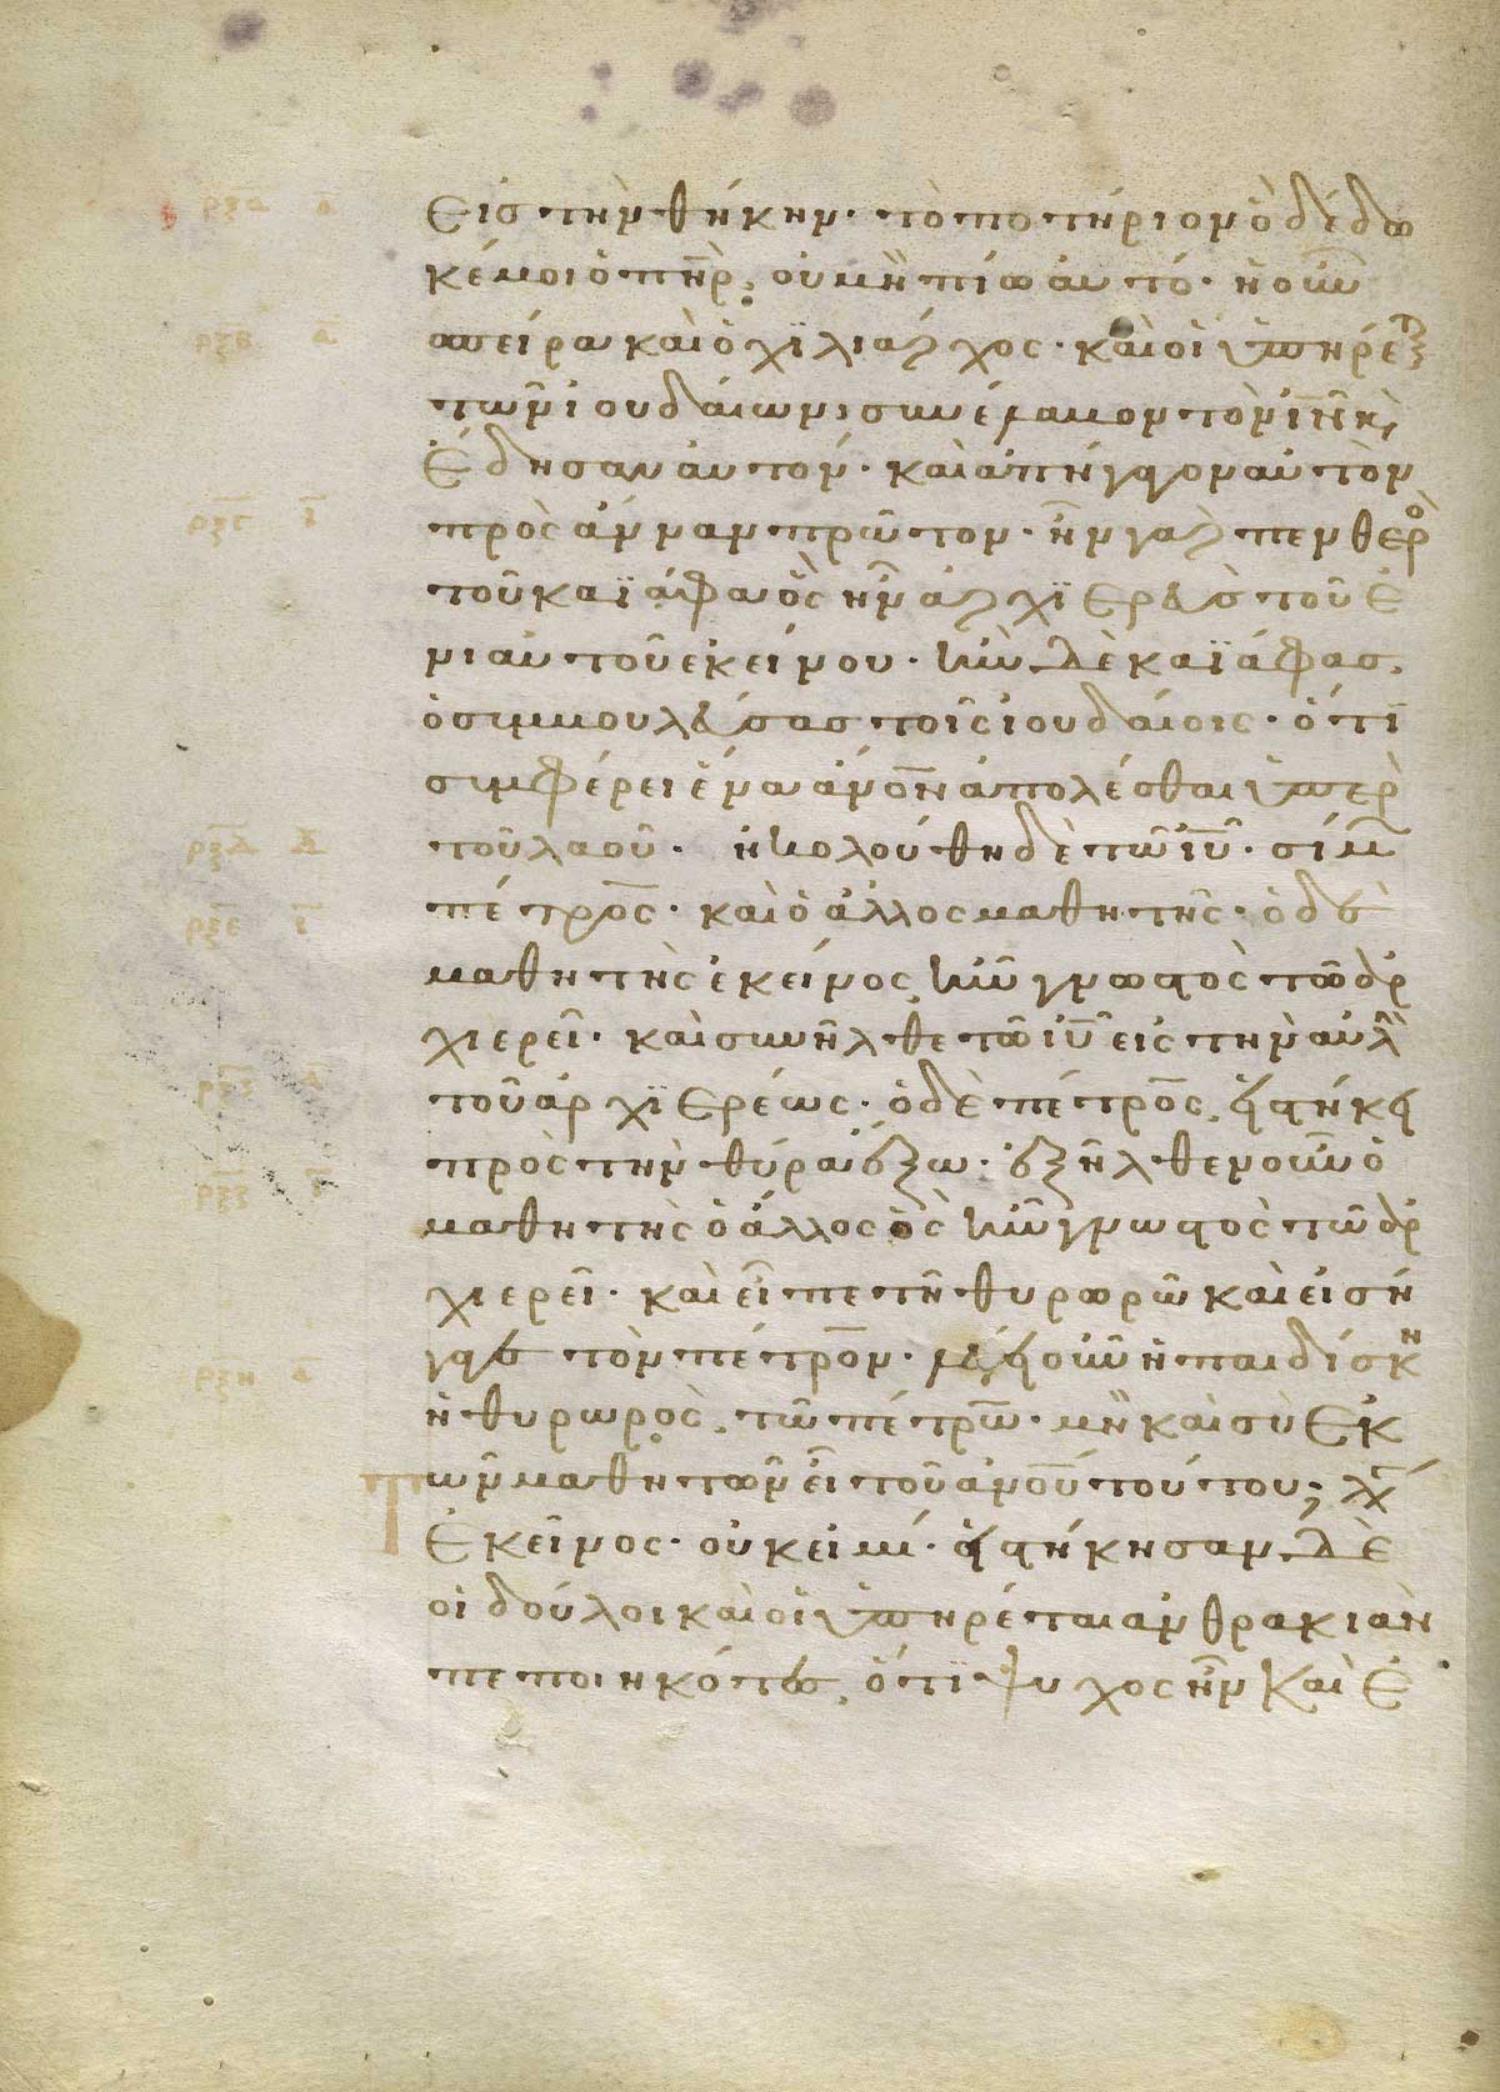 εἰσ τὴν θήκην· τὸ ποτήριον ὃ δέδω
κέ μοι ὁ πη̅ρ· οὐ μὴ πίω αὐτό· ἡ οὖν
σπείρα καὶ ὁ χϊλίαρχος· καὶ οἱ ὑπηρέτ
τῶν ἰουδαίων, συνέλαβον τὸν ι̅ν̅ κ,
ἔδησαν αὐτόν· καὶ ἀπήγαγον αὐτὸν
πρὸς ἄνναν πρῶτον· ἦν γὰρ πενθερὸ
τοῦ καϊάφα ὃς ἦν ἀρχϊερεὺσ τοῦ ἐ
νιαυτοῦ ἐκείνου· ἦν δὲ καϊάφασ,
ὁ συμβουλεύσασ τοῖς ἰουδαίοις· ὅτϊ
συμφέρει ἕνα α̅ν̅ο̅ν ἀπολέσθαι ὑπὲρ
τοῦ λαοῦ· ἠκολούθη δὲ τῶ ι̅υ̅· σίμ
πέτρος· καὶ ὁ ἄλλος μαθητὴς· ὁ δὲ
μαθητὴς ἐκεῖνος, ἦν γνωστὸς τῶ ἀρ
χιερεῖ· καὶ συνῆλθε τῶ ι̅υ̅ εἰς τὴν αὐλὴ
τοῦ ἀρχϊερέως· ὁ δὲ πέτρος, εἱστήκει
πρὸς τὴν θύρα ἔξω· ἐξῆλθεν οὖν ὁ
μαθητὴς ὁ ἄλλος ὃς ἦν γνωστὸς τῶ ἀρ
χιερεῖ· καὶ εἶπε τῆ θυρωρῶ καὶ εἰσή
γαγε τὸν πέτρον· λέγει οὖν ἡ παιδίσκη
ἡ θυρωρὸς, τῶ πέτρω· μὴ καὶ σὺ ἐκ
τῶν μαθητῶν εἶ τοῦ α̅ν̅ο̅υ τούτου; λέγ
ἐκεῖνος· οὐκ εἰμί· εἱστήκησαν δὲ
οἱ δούλοι καὶ οἱ ὑπηρέται ἀνθρακιὰν
πεποιηκότες, ὅτϊ ψυχος ἦν καὶ ἐ